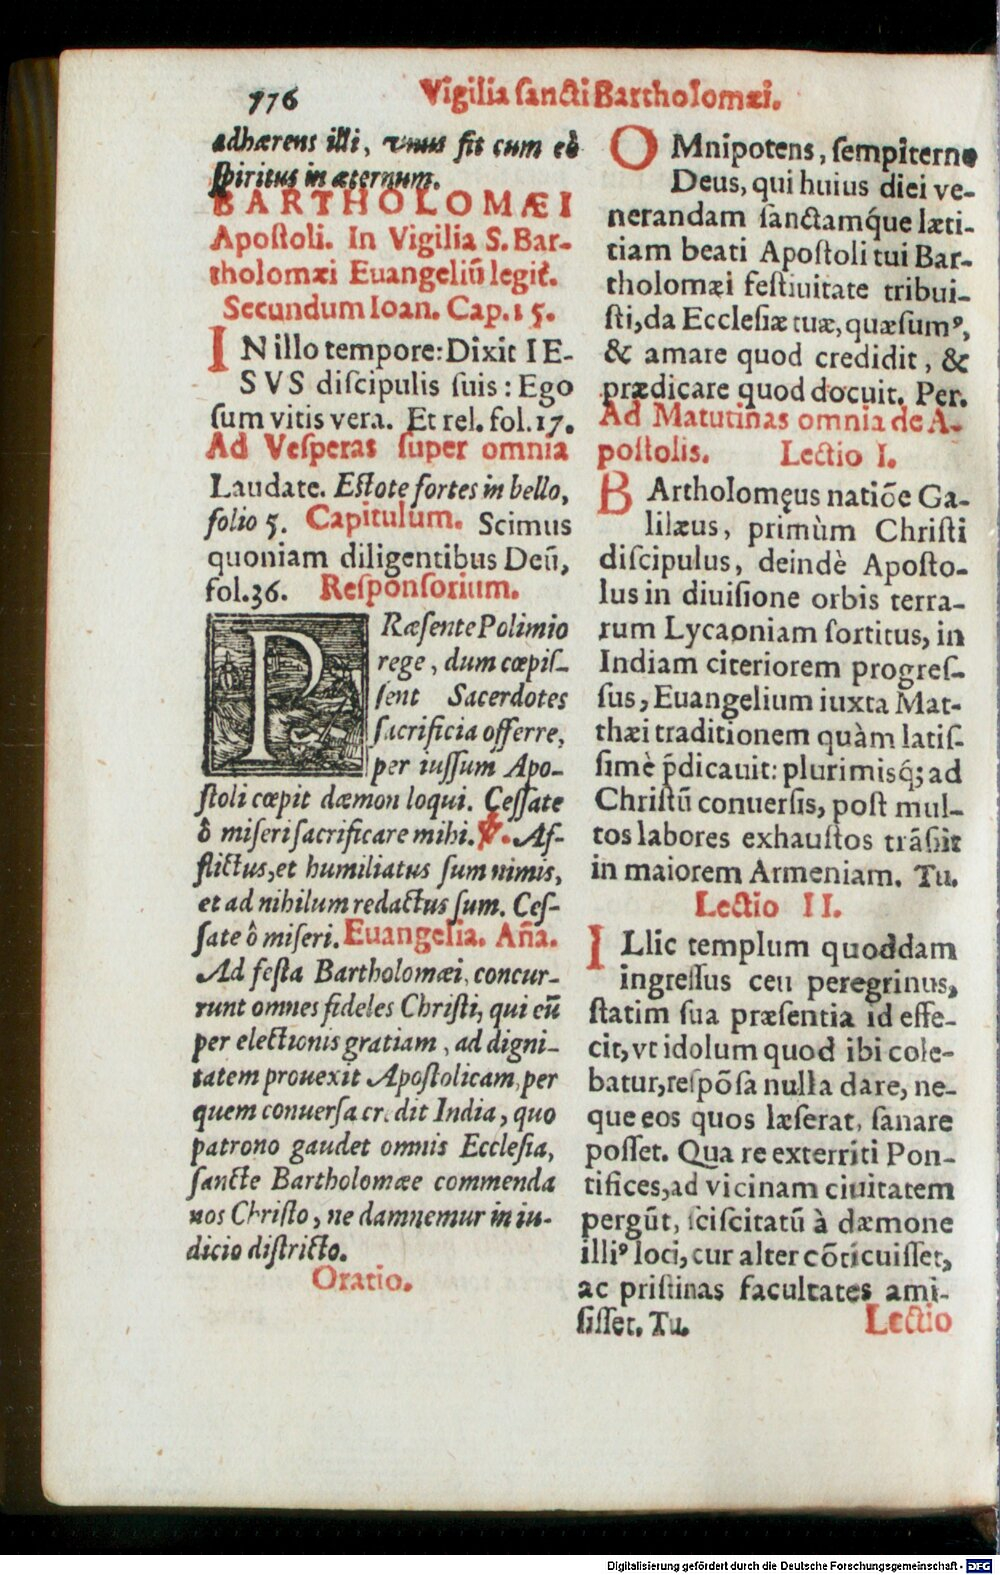 776
Vigilia sancti Bartholomæi.
adhærens illi, vnus fit cum eo
spiritus in æternum.
BARTHOLOMÆI
Apostoli. In Vigilia S. Bar-
tholomæi Euangeliũ legit̃.
Secundum Ioan. Cap. 15.
IN illo tempore: Dixit IE-
SVS discipulis suis: Ego
sum vitis vera. Et rel. fol. 17.
Ad Vesperas super omnia
Laudate. Estote fortes in bello,
folio 5. Capitulum. Scimus
quoniam diligentibus Deũ,
fol. 36. Responsorium.
PRæsente Polimio
rege, dum cœpis-
sent Sacerdotes
sacrificia offerre,
per iussum Apo-
stoli cœpit dæmon loqui. Cessate
ô miseri sacrificare mihi. ℣. Af-
flictus, et humiliatus sum nimis,
et ad nihilum redactus sum. Ces-
sate ô miseri. Euangelia. Aña.
Ad festa Bartholomæi, concur-
runt omnes fideles Christi, qui eũ
per electionis gratiam, ad digni-
tatem prouexit Apostolicam, per
quem conuersa credit India, quo
patrono gaudet omnis Ecclesia,
sancte Bartholomæe commenda
nos Christo, ne damnemur in iu-
dicio districto.
Oratio.
OMnipotens, sempiterne
Deus, qui huius diei ve-
nerandam sanctamq́ue læti-
tiam beati Apostoli tui Bar-
tholomæi festiuitate tribui-
sti, da Ecclesiæ tuæ, quæsumꝰ,
& amare quod credidit, &
prædicare quod docuit. Per.
Ad Matutinas omnia de A-
postolis. Lectio I.
BArtholomęus natiõe Ga-
lilæus, primùm Christi
discipulus, deindè Aposto-
lus in diuisione orbis terra-
rum Lycaoniam sortitus, in
Indiam citeriorem progres-
sus, Euangelium iuxta Mat-
thæi traditionem quàm latis-
simè p̃dicauit: plurimisq́; ad
Christũ conuersis, post mul-
tos labores exhaustos trãsiit
in maiorem Armeniam. Tu.
Lectio II.
ILlic templum quoddam
ingressus ceu peregrinus,
statim sua præsentia id effe-
cit, vt idolum quod ibi cole-
batur, respõsa nulla dare, ne-
que eos quos læserat, sanare
posset. Qua re exterriti Pon-
tifices, ad vicinam ciuitatem
pergũt, sciscitatũ à dæmone
illiꝰ loci, cur alter cõticuisset,
ac pristinas facultates ami-
sisset. Tu.
Lectio
Digitalisierung gefördert durch die Deutsche Forschungsgemeinschaft - DFG